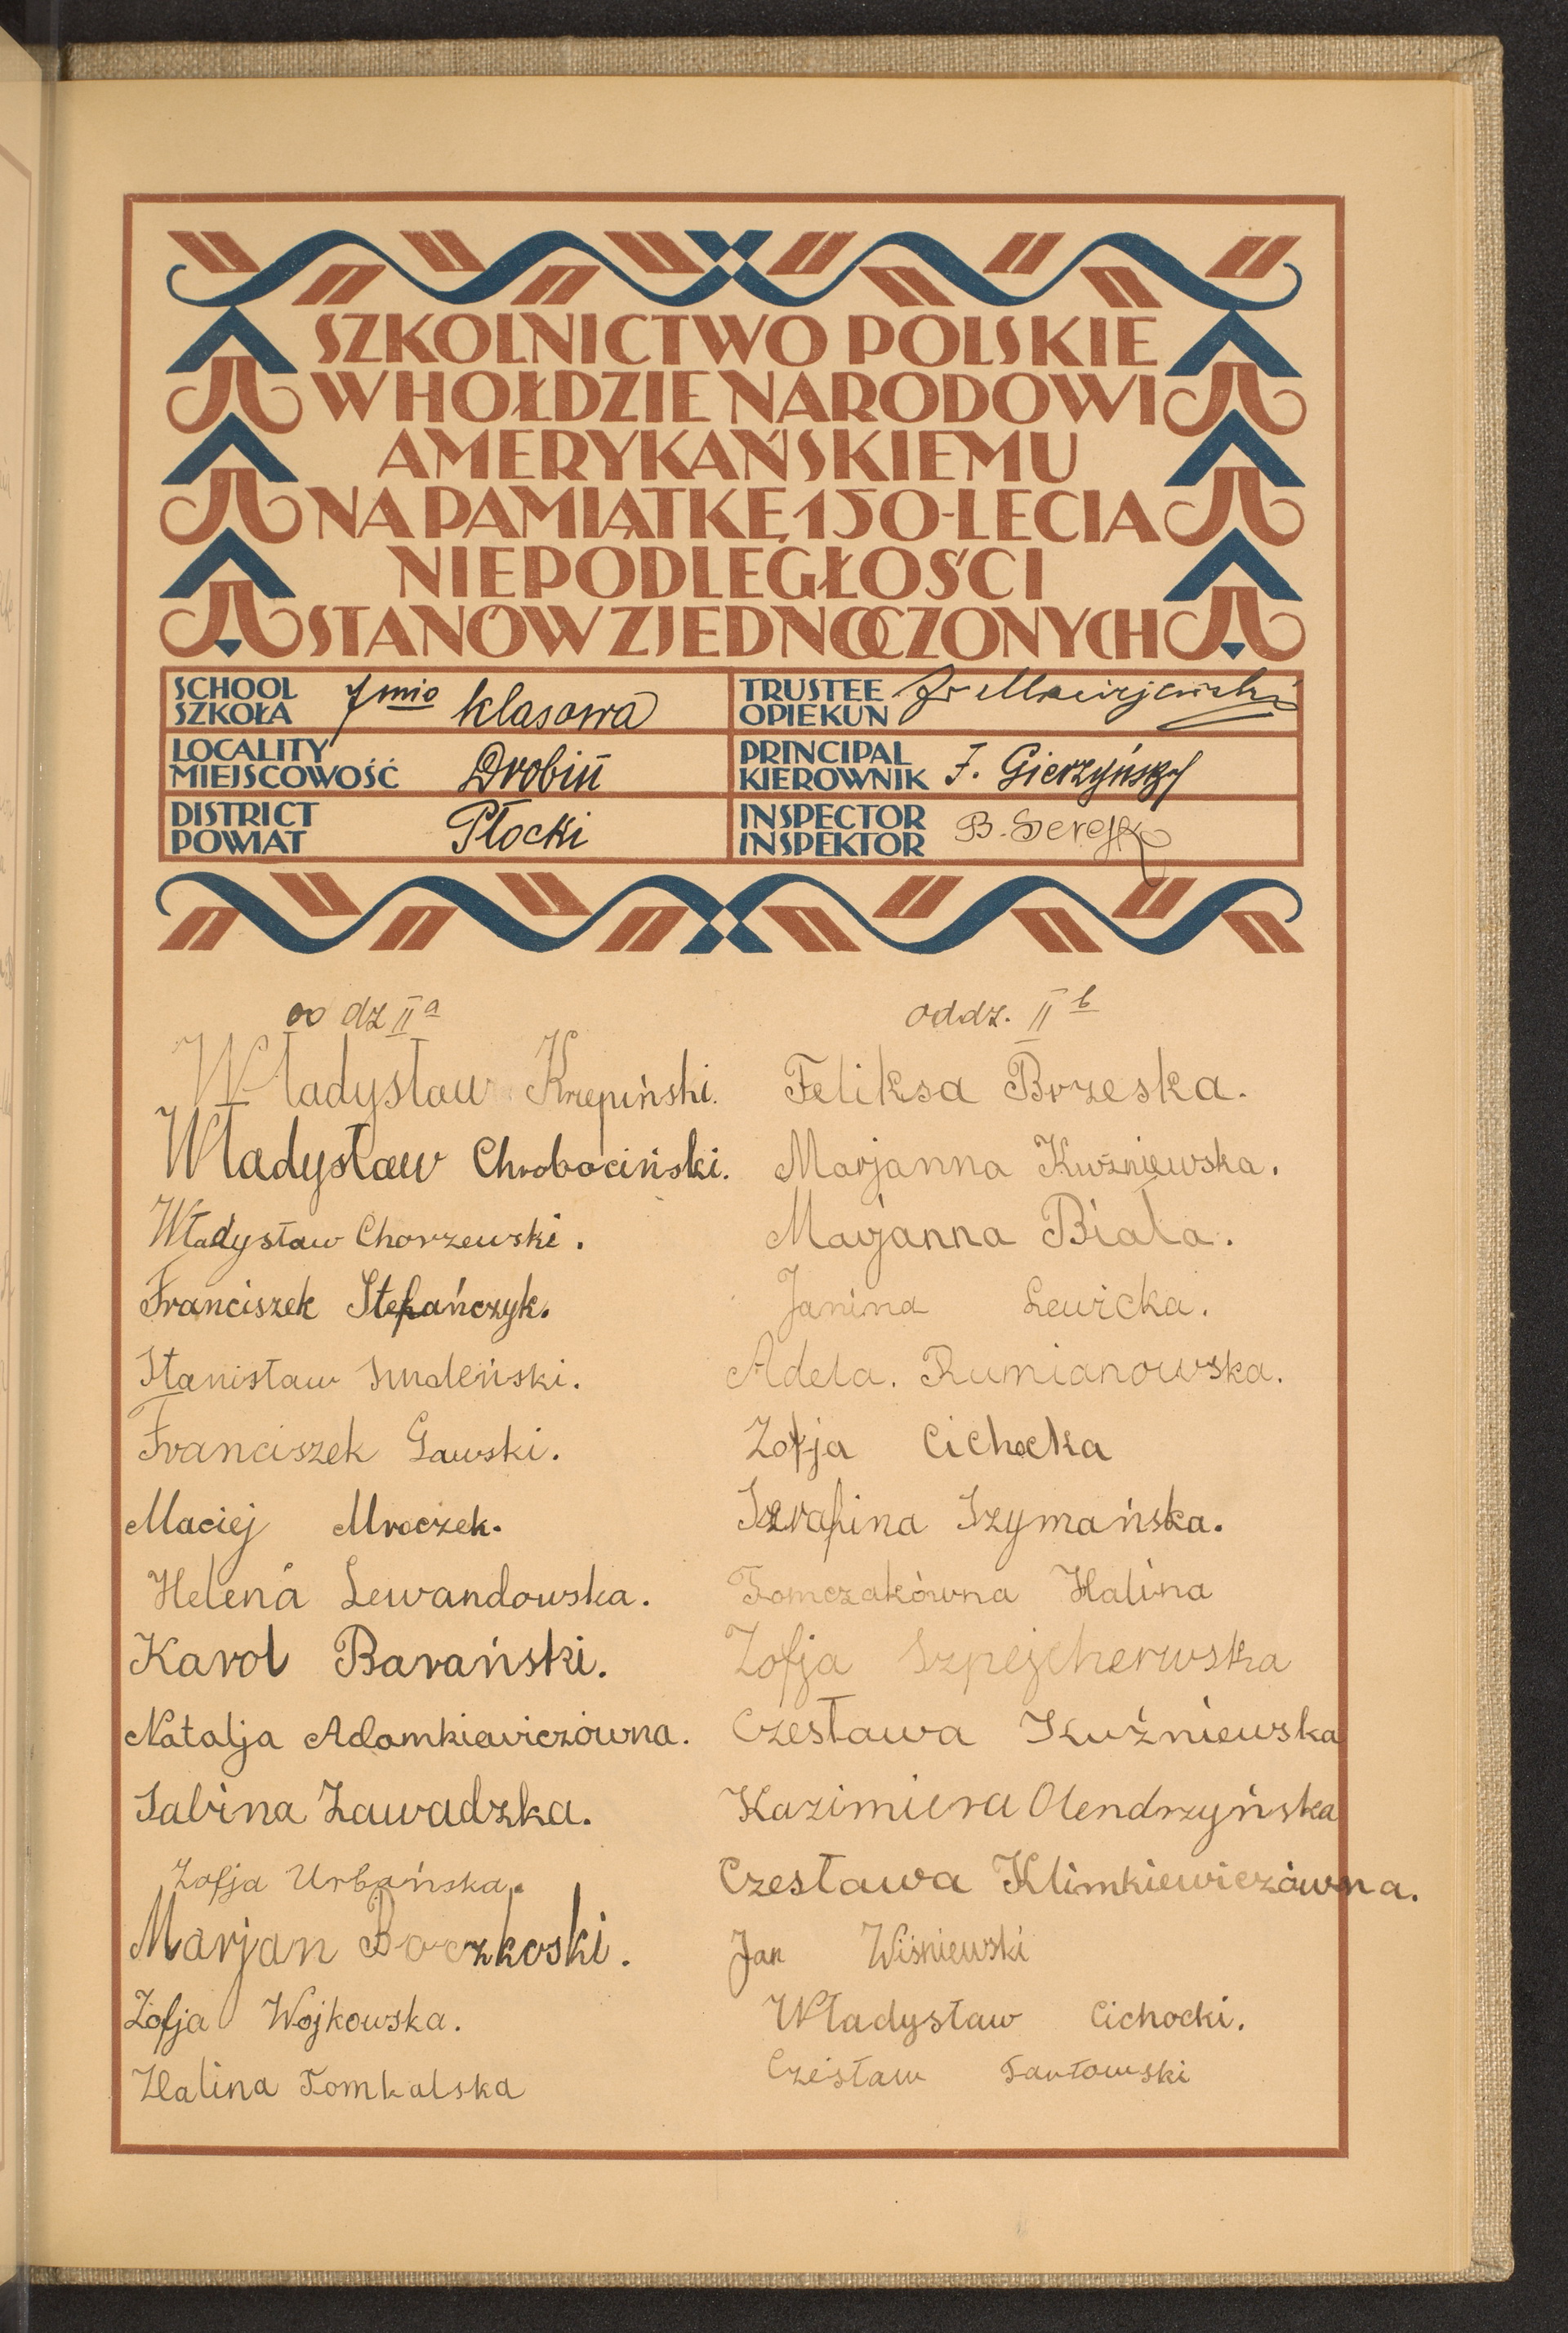 SZKOLNICTWO POLSKIE
W HOŁDZIE NARODOWI
AMERYKAŃSKIEMU
NA PAMIĄTKĘ 150-LECIA
NIEPODLEGŁOŚCI
STANÓW ZJEDNOCZONYCH
SCHOOL
SZKOŁA
7mio klasowa
TRUSTEE
OPIEKUN
LOCALITY
MIEJSCOWOŚĆ
Drobiń
PRINCIPAL
KIEROWNIK
J. Gierzyński
DISTRICT
POWIAT
Płocki
INSPECTOR
INSPEKTOR
B.
oddz IIa
Władysław Krepiński.
Władysław Chrobociński.
Władysław Chorzewski.
Franciszek Stefańczyk.
Stanisław Smoleński.
Franciszek Gawski.
Maciej Mroczek.
Helena Lewandowska.
Karol Barański.
Natalja Adamkiewiczówna.
Sabina Zawadzka.
Zofja Urbańska.
Marjan Boczkoski.
Zofja Wojkowska.
Halina Tomkalska
oddz. IIb
Feliksa Brzeska.
Marjanna Kuźniewska.
Marjanna Biała.
Janina Lewicka.
Adela. Rumianowska.
Zofja Cichocka
Szrafina Szymańska.
Tomczakówna Halina
Zofja Szpejcherwska
Czesława Kuźniewska
Kazimiera Olendrzyńska
Czesława Klimkiewiczówna.
Jan Wiśniewski
Władysław Cichocki.
Czesław